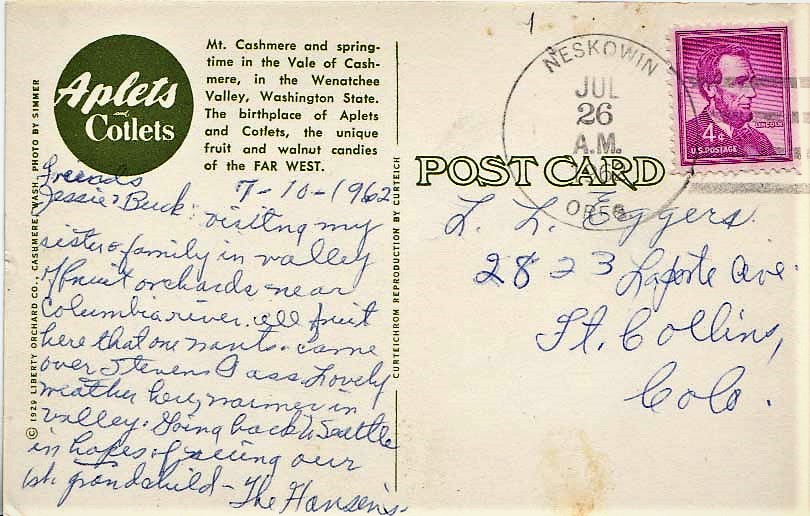 Aplets
and
Cotlets
Mt. Cashmere and spring-
time in the Vale of Cash-
mere, in the Wenatchee
Valley, Washington State.
The birthplace of Aplets
and Cotlets, the unique
fruit and walnut candies
of the FAR WEST.
© 1929 LIBERTY ORCHARD CO., CASHMERE, WASH. PHOTO BY SIMMER
7-10-1962
Friends
Jessie & Buck: visiting my
sister & family in valley
of fruit orchards near
Columbia river. all fruit
here that one wants. came
over Stevens Pass. Lovely
weather here, warmer in
valley. Going back to Seattle
in hopes of seeing our
1st. grandchild - The Hansen's.
CURTEICHROM REPRODUCTION BY CURTEICH
POST CARD
NESKOWIN
JUL
26
A.M.
OREG
LINCOLN
4¢
U.S. POSTAGE
L. L. Eggers.
2823 Laporte Ave.
Ft. Collins,
Colo.